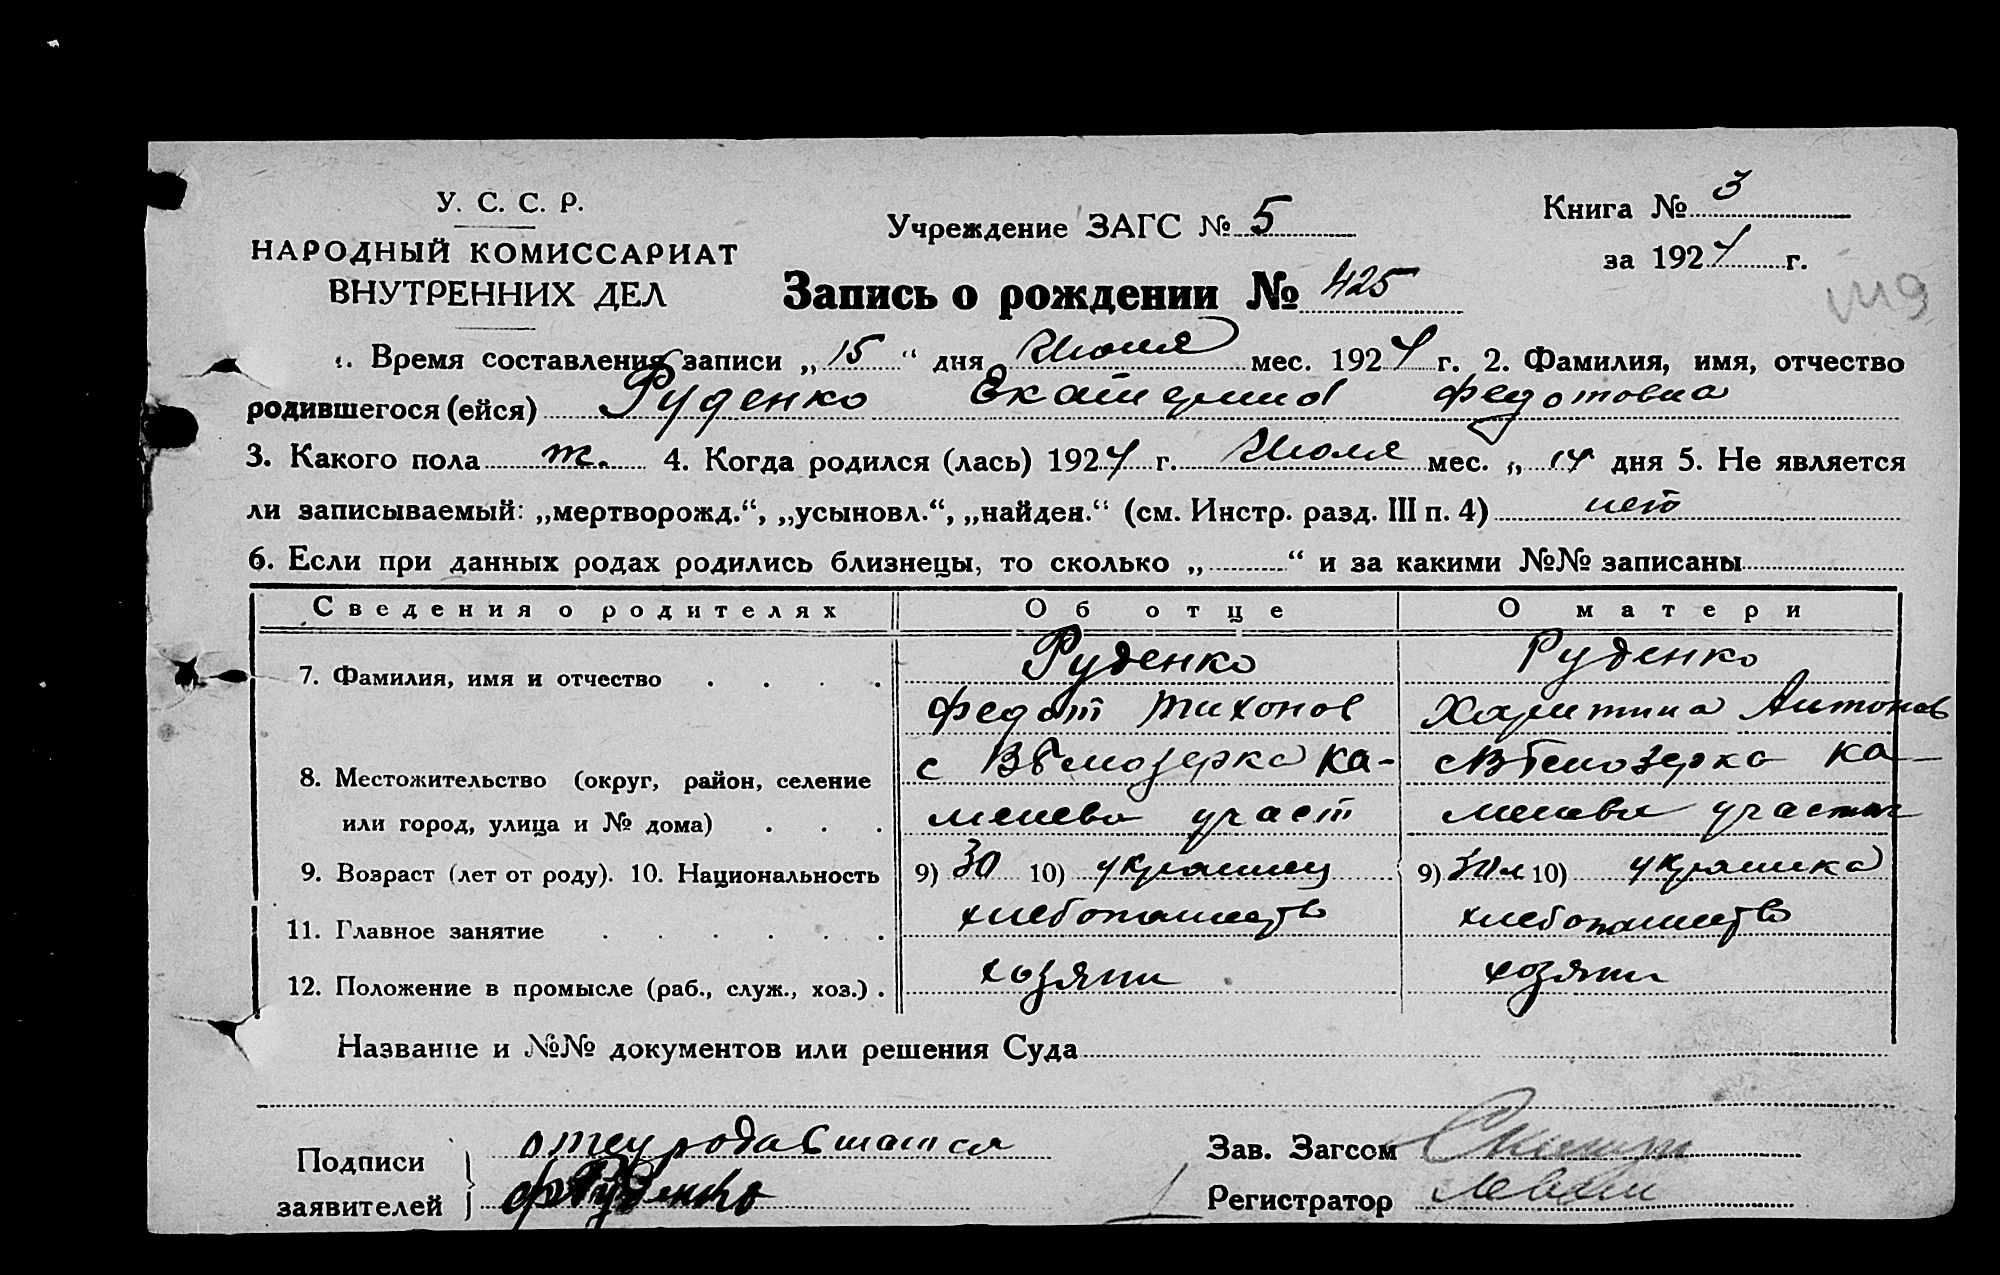 У. С. С. Р.
НАРОДНЫЙ КОМИССАРИАТ
ВНУТРЕННИХ ДЕЛ
Учреждение ЗАГС № 5
Книга № 3
за 1924 г.
Запись о рождении № 425
1. Время составления записи „ 15 “ дня Июля мес. 1924 г. 2. Фамилия, имя, отчество
родившегося (ейся) Руденко Екатерина Федотовна
3. Какого пола ж. 4. Когда родился (лась) 1924 г. Июля мес. „ 14 дня 5. Не является
ли записываемый: „мертворожд.“, „усыновл.“, „найден.“ (см. Инстр. разд. III п. 4) нет
6. Если при данных родах родились близнецы, то сколько „ “ и за какими №№ записаны
Сведения о родителях Об отце О матери
7. Фамилия, имя и отчество Руденко Руденко
Федот Тихонов Харитина Антонов
8. Местожительство (округ, район, селение с Вбелозерка Ка- с Вбелозерка Ка-
или город, улица и № дома) менева участ менева участок
9. Возраст (лет от роду). 10. Национальность 9) 30 10) украинец 9) 30 л 10) украинка
11. Главное занятие хлебопашество хлебопашество
12. Положение в промысле (раб., служ., хоз.) хозяин хозяин
Название и №№ документов или решения Суда
Подписи отец родавшаяся
заявителей Ф Руденко
Зав. Загсом
Регистратор